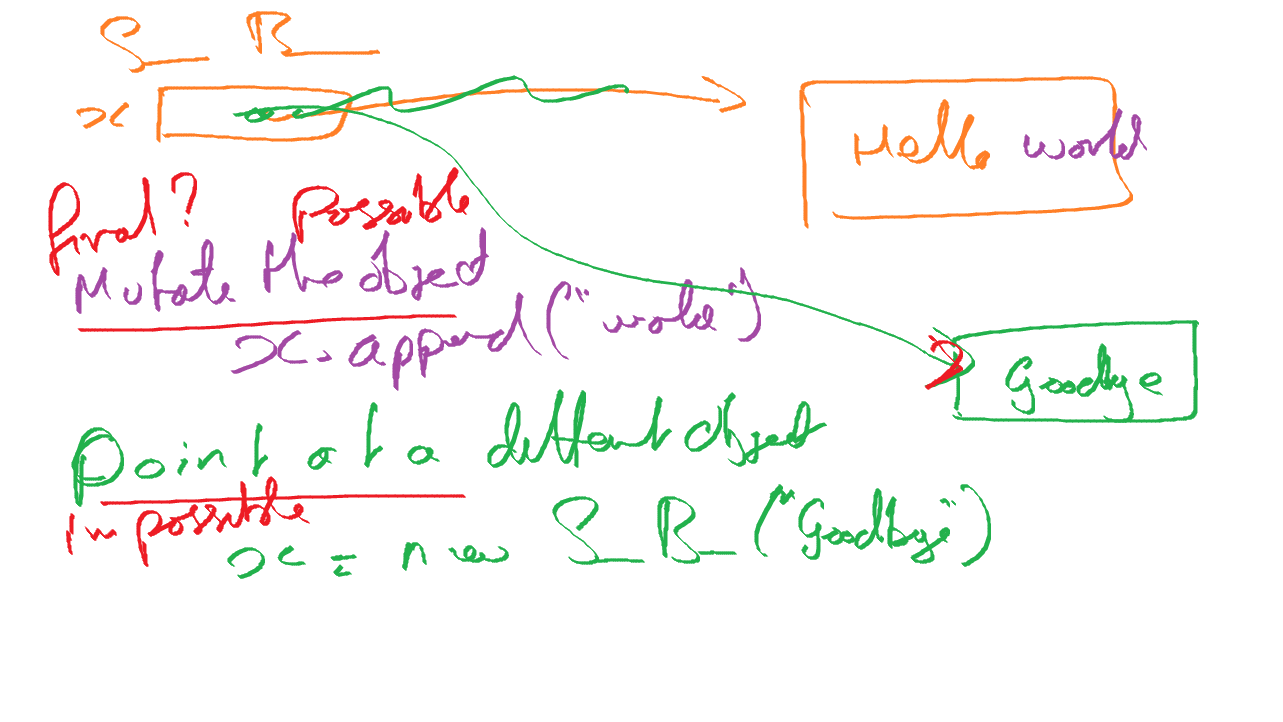 S__ B__
x
Hello world
final? Possible
Mutate the object
x.append("world")
Goodbye
Point at a different object
Impossible
x = new S_B_("Goodbye")